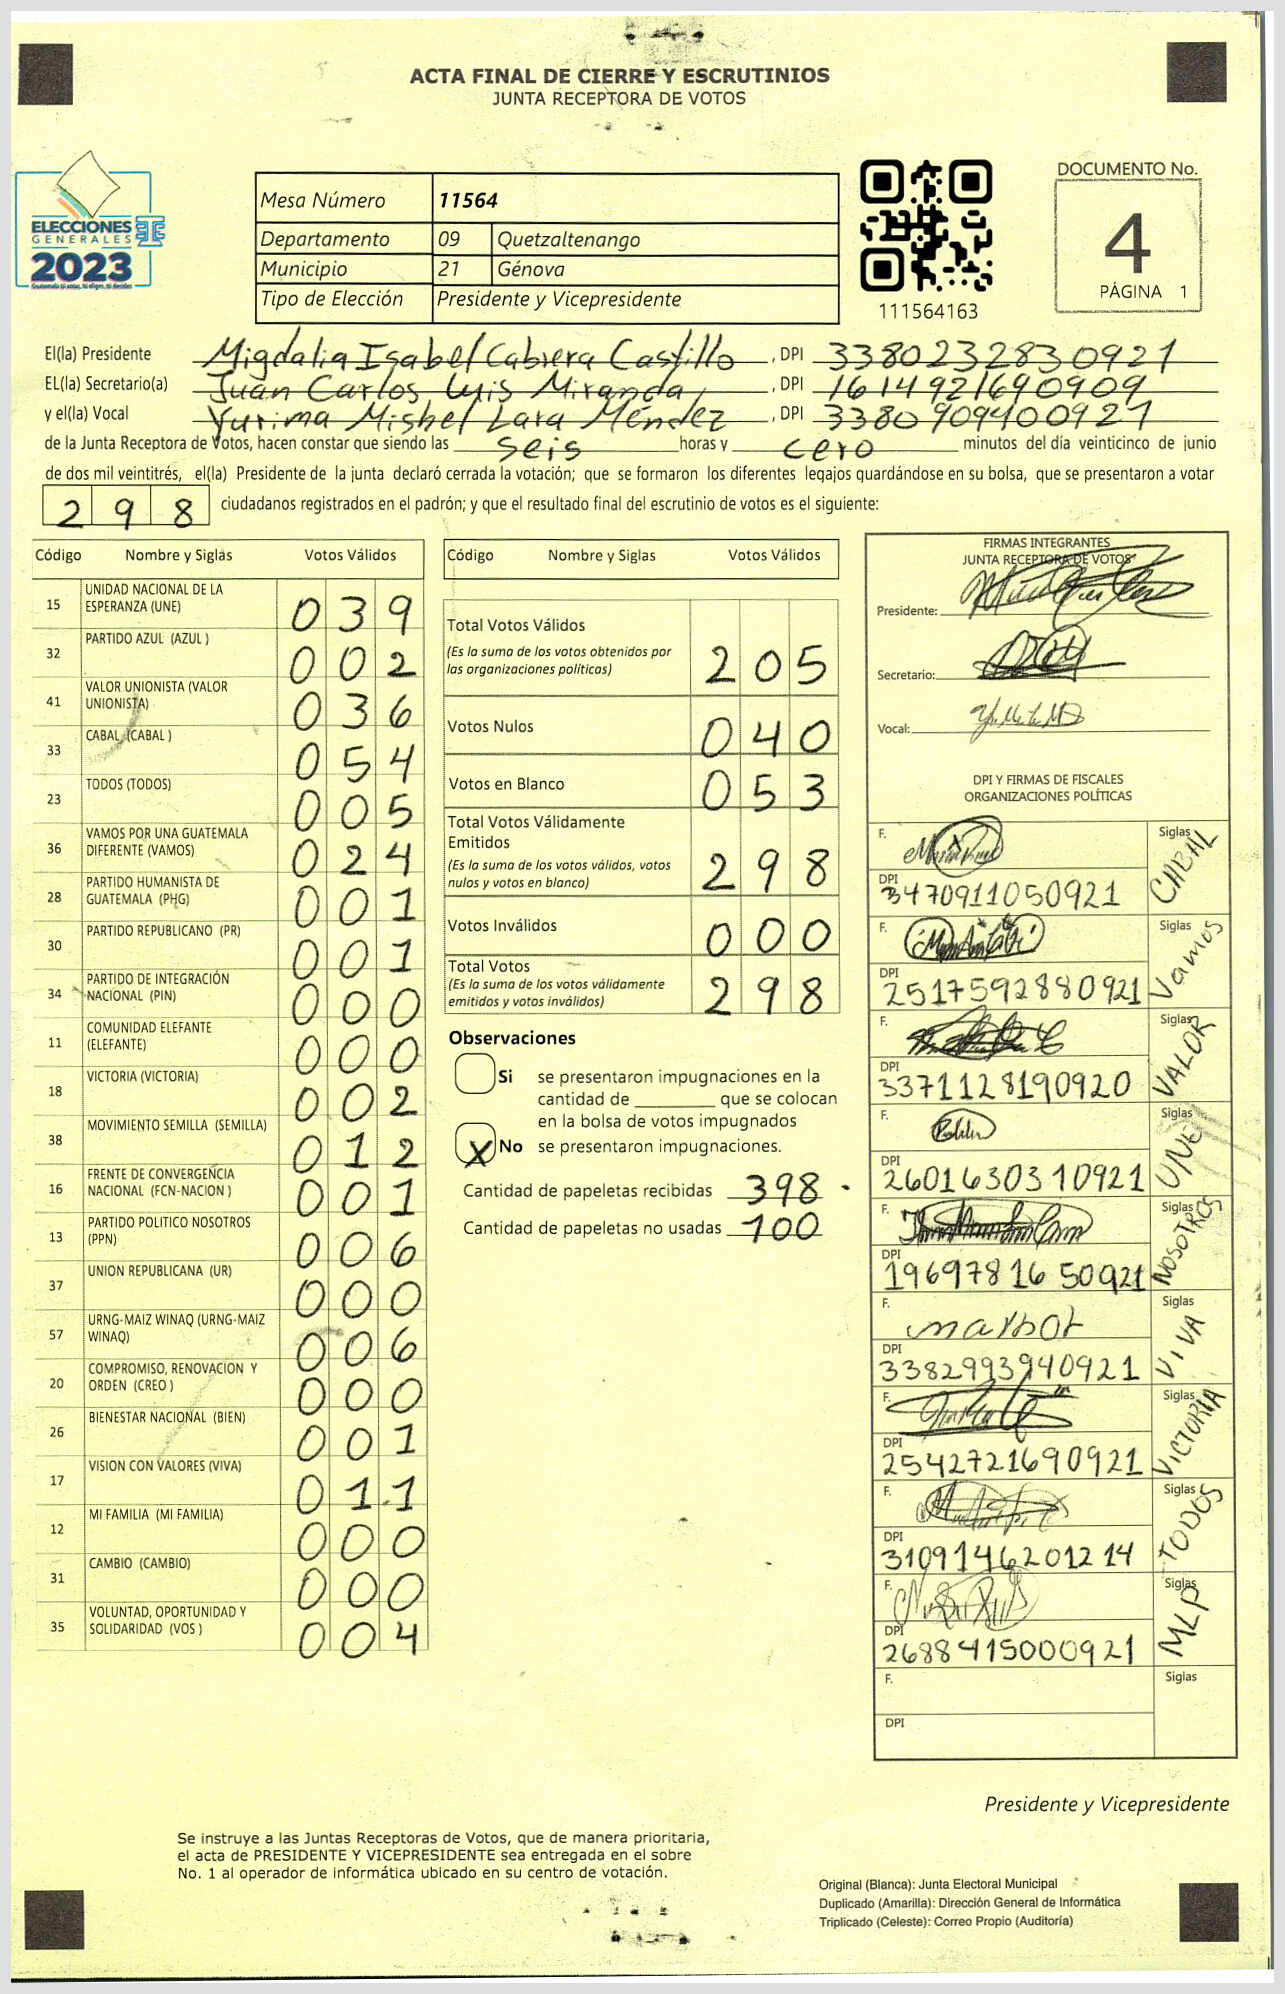 ACTA FINAL DE CIERRE Y ESCRUTINIOS
JUNTA RECEPTORA DE VOTOS
ELECCIONES
GENERALES
2023
Mesa Número 11564
Departamento 09 Quetzaltenango
Municipio 21 Génova
Tipo de Elección Presidente y Vicepresidente
111564163
DOCUMENTO No.
4
PÁGINA 1
El(la) Presidente Migdalia Isabel Cabrera Castillo, DPI 3380232830921
EL(la) Secretario(a) Juan Carlos Luis Miranda, DPI 1614921690909
y el(la) Vocal Yurima Mishel Lara Méndez, DPI 3380909400921
de la Junta Receptora de Votos, hacen constar que siendo las seis horas y cero minutos del día veinticinco de junio
de dos mil veintitrés, el(la) Presidente de la junta declaró cerrada la votación; que se formaron los diferentes legajos guardándose en su bolsa, que se presentaron a votar
298 ciudadanos registrados en el padrón; y que el resultado final del escrutinio de votos es el siguiente:
Código Nombre y Siglas Votos Válidos
15 UNIDAD NACIONAL DE LA
ESPERANZA (UNE) 039
32 PARTIDO AZUL (AZUL ) 002
41 VALOR UNIONISTA (VALOR
UNIONISTA) 036
33 CABAL (CABAL ) 054
23 TODOS (TODOS) 005
36 VAMOS POR UNA GUATEMALA
DIFERENTE (VAMOS) 024
28 PARTIDO HUMANISTA DE
GUATEMALA (PHG) 001
30 PARTIDO REPUBLICANO (PR) 001
34 PARTIDO DE INTEGRACIÓN
NACIONAL (PIN) 000
11 COMUNIDAD ELEFANTE
(ELEFANTE) 000
18 VICTORIA (VICTORIA) 002
38 MOVIMIENTO SEMILLA (SEMILLA) 012
16 FRENTE DE CONVERGENCIA
NACIONAL (FCN-NACION ) 001
13 PARTIDO POLITICO NOSOTROS
(PPN) 006
37 UNION REPUBLICANA (UR) 000
57 URNG-MAIZ WINAQ (URNG-MAIZ
WINAQ) 006
20 COMPROMISO, RENOVACION Y
ORDEN (CREO ) 000
26 BIENESTAR NACIONAL (BIEN) 001
17 VISION CON VALORES (VIVA) 011
12 MI FAMILIA (MI FAMILIA) 000
31 CAMBIO (CAMBIO) 000
35 VOLUNTAD, OPORTUNIDAD Y
SOLIDARIDAD (VOS ) 004
Código Nombre y Siglas Votos Válidos
Total Votos Válidos
(Es la suma de los votos obtenidos por
las organizaciones políticas) 205
Votos Nulos 040
Votos en Blanco 053
Total Votos Válidamente
Emitidos
(Es la suma de los votos válidos, votos
nulos y votos en blanco) 298
Votos Inválidos 000
Total Votos
(Es la suma de los votos válidamente
emitidos y votos inválidos) 298
Observaciones
Si se presentaron impugnaciones en la
cantidad de ________ que se colocan
en la bolsa de votos impugnados
X No se presentaron impugnaciones.
Cantidad de papeletas recibidas 398
Cantidad de papeletas no usadas 100
FIRMAS INTEGRANTES
JUNTA RECEPTORA DE VOTOS
Presidente:
Secretario:
Vocal:
DPI Y FIRMAS DE FISCALES
ORGANIZACIONES POLÍTICAS
F. Siglas CABAL
DPI 3470911050921
F. Siglas Vamos
DPI 2517592880921
F. Siglas VALOR
DPI 3371128190920
F. Siglas UNE
DPI 2601630310921
F. Siglas NOSOTROS
DPI 1969781650921
F. Siglas VIVA
DPI 3382993940921
F. Siglas VICTORIA
DPI 2542721690921
F. Siglas TODOS
DPI 3109146201214
F. Siglas MLP
DPI 2688415000921
F. Siglas
DPI
Presidente y Vicepresidente
Se instruye a las Juntas Receptoras de Votos, que de manera prioritaria,
el acta de PRESIDENTE Y VICEPRESIDENTE sea entregada en el sobre
No. 1 al operador de informática ubicado en su centro de votación.
Original (Blanca): Junta Electoral Municipal
Duplicado (Amarilla): Dirección General de Informática
Triplicado (Celeste): Correo Propio (Auditoría)